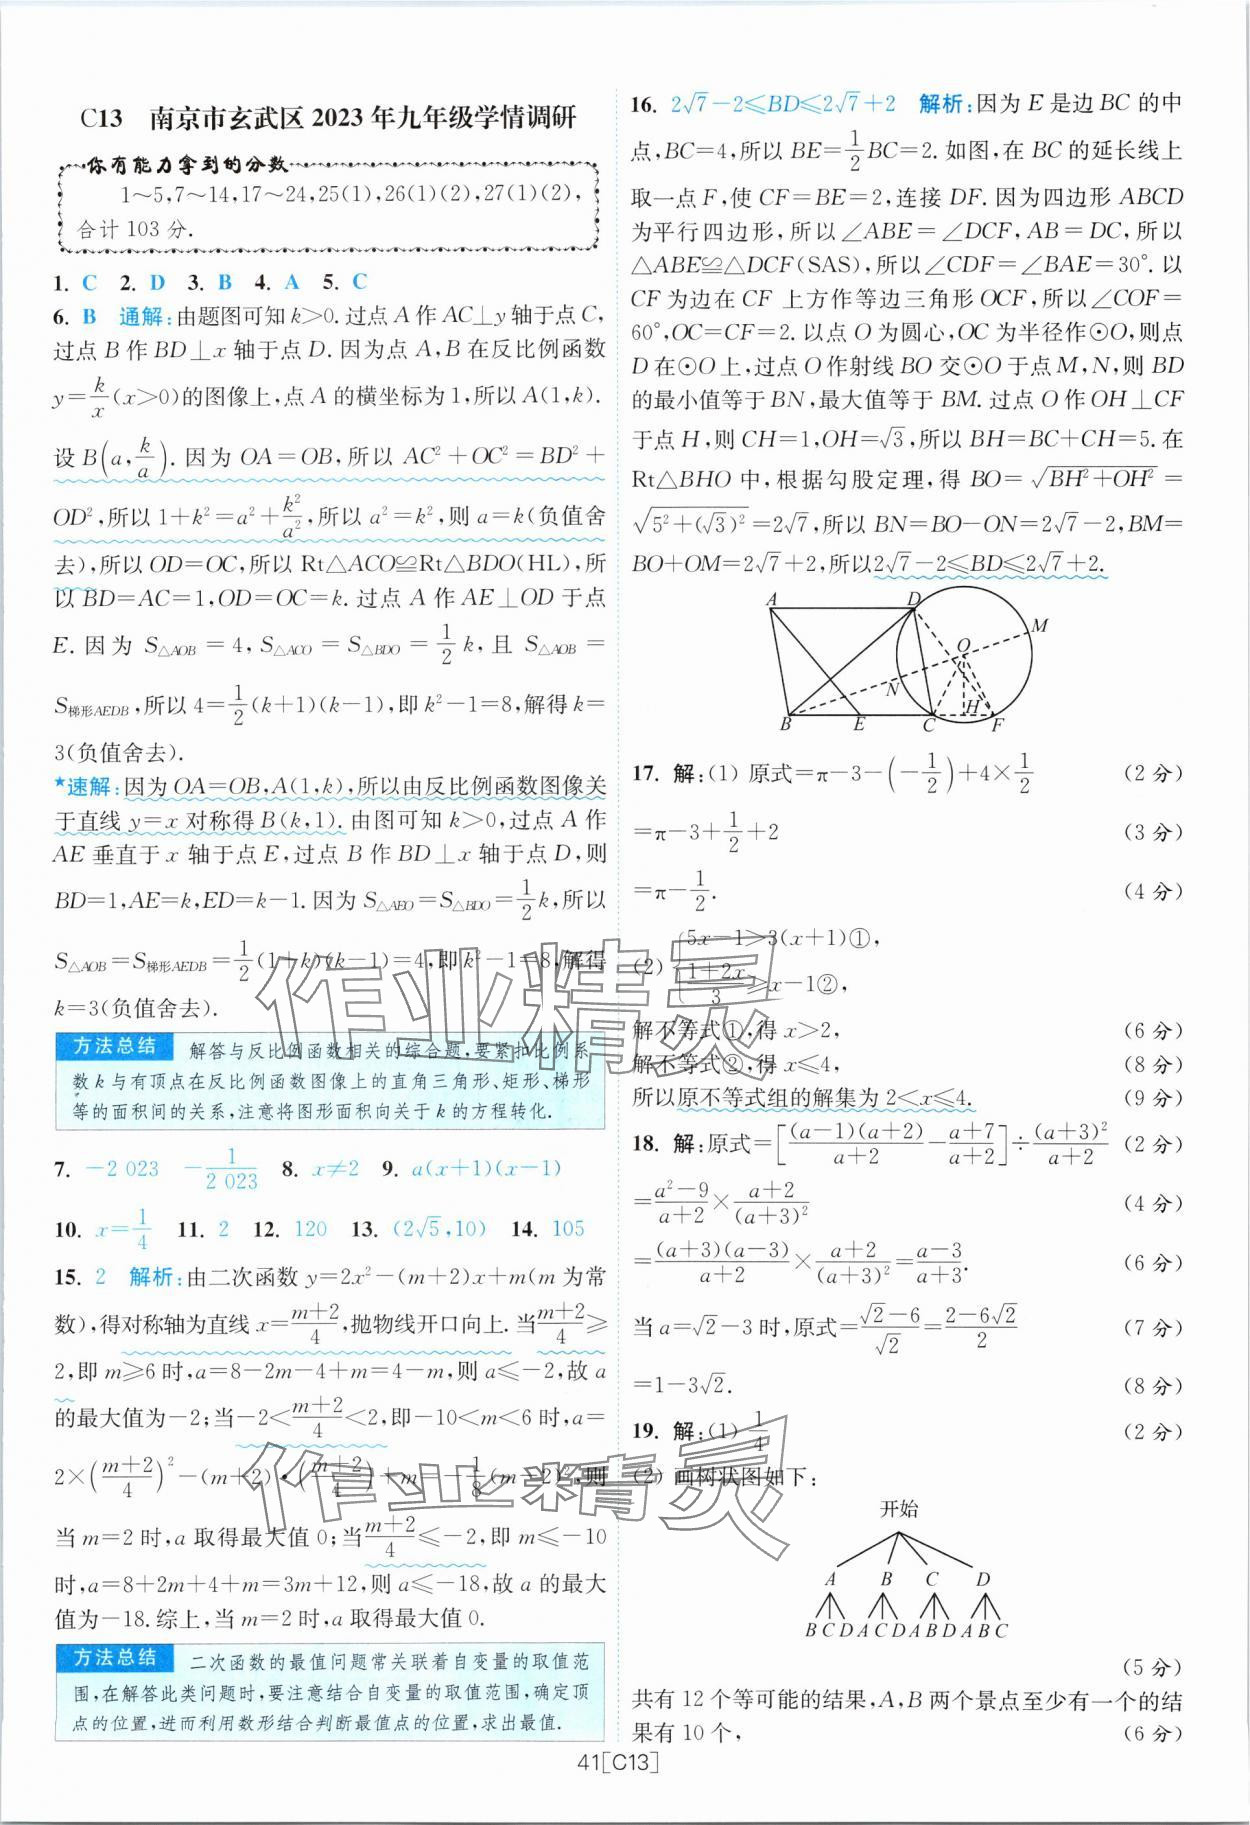 C13 南京市玄武区2023年九年级学情调研
你有能力拿到的分数
1～5,7～14,17～24,25(1),26(1)(2),27(1)(2),
合计103分.
1. C 2. D 3. B 4. A 5. C
6. B 通解:由题图可知k>0.过点A作AC⊥y轴于点C,
过点B作BD⊥x轴于点D.因为点A,B在反比例函数
y=k/x(x>0)的图像上,点A的横坐标为1,所以A(1,k).
设B(a,k/a).因为OA=OB,所以AC²+OC²=BD²+
OD²,所以1+k²=a²+k²/a²,所以a²=k²,则a=k(负值舍
去),所以OD=OC,所以Rt△ACO≌Rt△BDO(HL),所
以BD=AC=1,OD=OC=k.过点A作AE⊥OD于点
E.因为S△AOB=4,S△ACO=S△BDO=1/2k,且S△AOB=
S梯形AEDB,所以4=1/2(k+1)(k-1),即k²-1=8,解得k=
3(负值舍去).
*速解:因为OA=OB,A(1,k),所以由反比例函数图像关
于直线y=x对称得B(k,1).由图可知k>0,过点A作
AE垂直于x轴于点E,过点B作BD⊥x轴于点D,则
BD=1,AE=k,ED=k-1.因为S△AEO=S△BDO=1/2k,所以
S△AOB=S梯形AEDB=1/2(1+k)(k-1)=4,即k²-1=8,解得
k=3(负值舍去).
方法总结 解答与反比例函数相关的综合题,要紧扣比例系
数k与有顶点在反比例函数图像上的直角三角形、矩形、梯形
等的面积间的关系,注意将图形面积向关于k的方程转化.
7. -2 023 -1/2 023 8. x≠2 9. a(x+1)(x-1)
10. x=1/4 11. 2 12. 120 13. (2√5,10) 14. 105
15. 2 解析:由二次函数y=2x²-(m+2)x+m(m为常
数),得对称轴为直线x=(m+2)/4,抛物线开口向上.当(m+2)/4≥
2,即m≥6时,a=8-2m-4+m=4-m,则a≤-2,故a
的最大值为-2;当-2<(m+2)/4<2,即-10<m<6时,a=
2×((m+2)/4)²-(m+2)•((m+2)/4)+m=-1/8(m-2)²,则
当m=2时,a取得最大值0;当(m+2)/4≤-2,即m≤-10
时,a=8+2m+4+m=3m+12,则a≤-18,故a的最大
值为-18.综上,当m=2时,a取得最大值0.
方法总结 二次函数的最值问题常关联着自变量的取值范
围,在解答此类问题时,要注意结合自变量的取值范围,确定顶
点的位置,进而利用数形结合判断最值点的位置,求出最值.
16. 2√7-2≤BD≤2√7+2 解析:因为E是边BC的中
点,BC=4,所以BE=1/2BC=2.如图,在BC的延长线上
取一点F,使CF=BE=2,连接DF.因为四边形ABCD
为平行四边形,所以∠ABE=∠DCF,AB=DC,所以
△ABE≌△DCF(SAS),所以∠CDF=∠BAE=30°.以
CF为边在CF上方作等边三角形OCF,所以∠COF=
60°,OC=CF=2.以点O为圆心,OC为半径作⊙O,则点
D在⊙O上,过点O作射线BO交⊙O于点M,N,则BD
的最小值等于BN,最大值等于BM.过点O作OH⊥CF
于点H,则CH=1,OH=√3,所以BH=BC+CH=5.在
Rt△BHO中,根据勾股定理,得BO=√(BH²+OH²)=
√(5²+(√3)²)=2√7,所以BN=BO-ON=2√7-2,BM=
BO+OM=2√7+2,所以2√7-2≤BD≤2√7+2.
A D
M
O
N
B E C H F
17. 解:(1)原式=π-3-(-1/2)+4×1/2 (2分)
=π-3+1/2+2 (3分)
=π-1/2. (4分)
(2) {5x-1>3(x+1)①,
(1+2x)/3≥x-1②,
解不等式①,得x>2, (6分)
解不等式②,得x≤4, (8分)
所以原不等式组的解集为2<x≤4. (9分)
18. 解:原式=[(a-1)(a+2)/(a+2)-(a+7)/(a+2)]÷(a+3)²/(a+2) (2分)
=(a²-9)/(a+2)×(a+2)/(a+3)² (4分)
=(a+3)(a-3)/(a+2)×(a+2)/(a+3)²=(a-3)/(a+3). (6分)
当a=√2-3时,原式=(√2-6)/√2=(2-6√2)/2 (7分)
=1-3√2. (8分)
19. 解:(1) 1/4 (2分)
(2)画树状图如下:
开始
A B C D
B C D A C D A B D A B C
(5分)
共有12个等可能的结果,A,B两个景点至少有一个的结
果有10个, (6分)
41[C13]
作业精灵
作业精灵